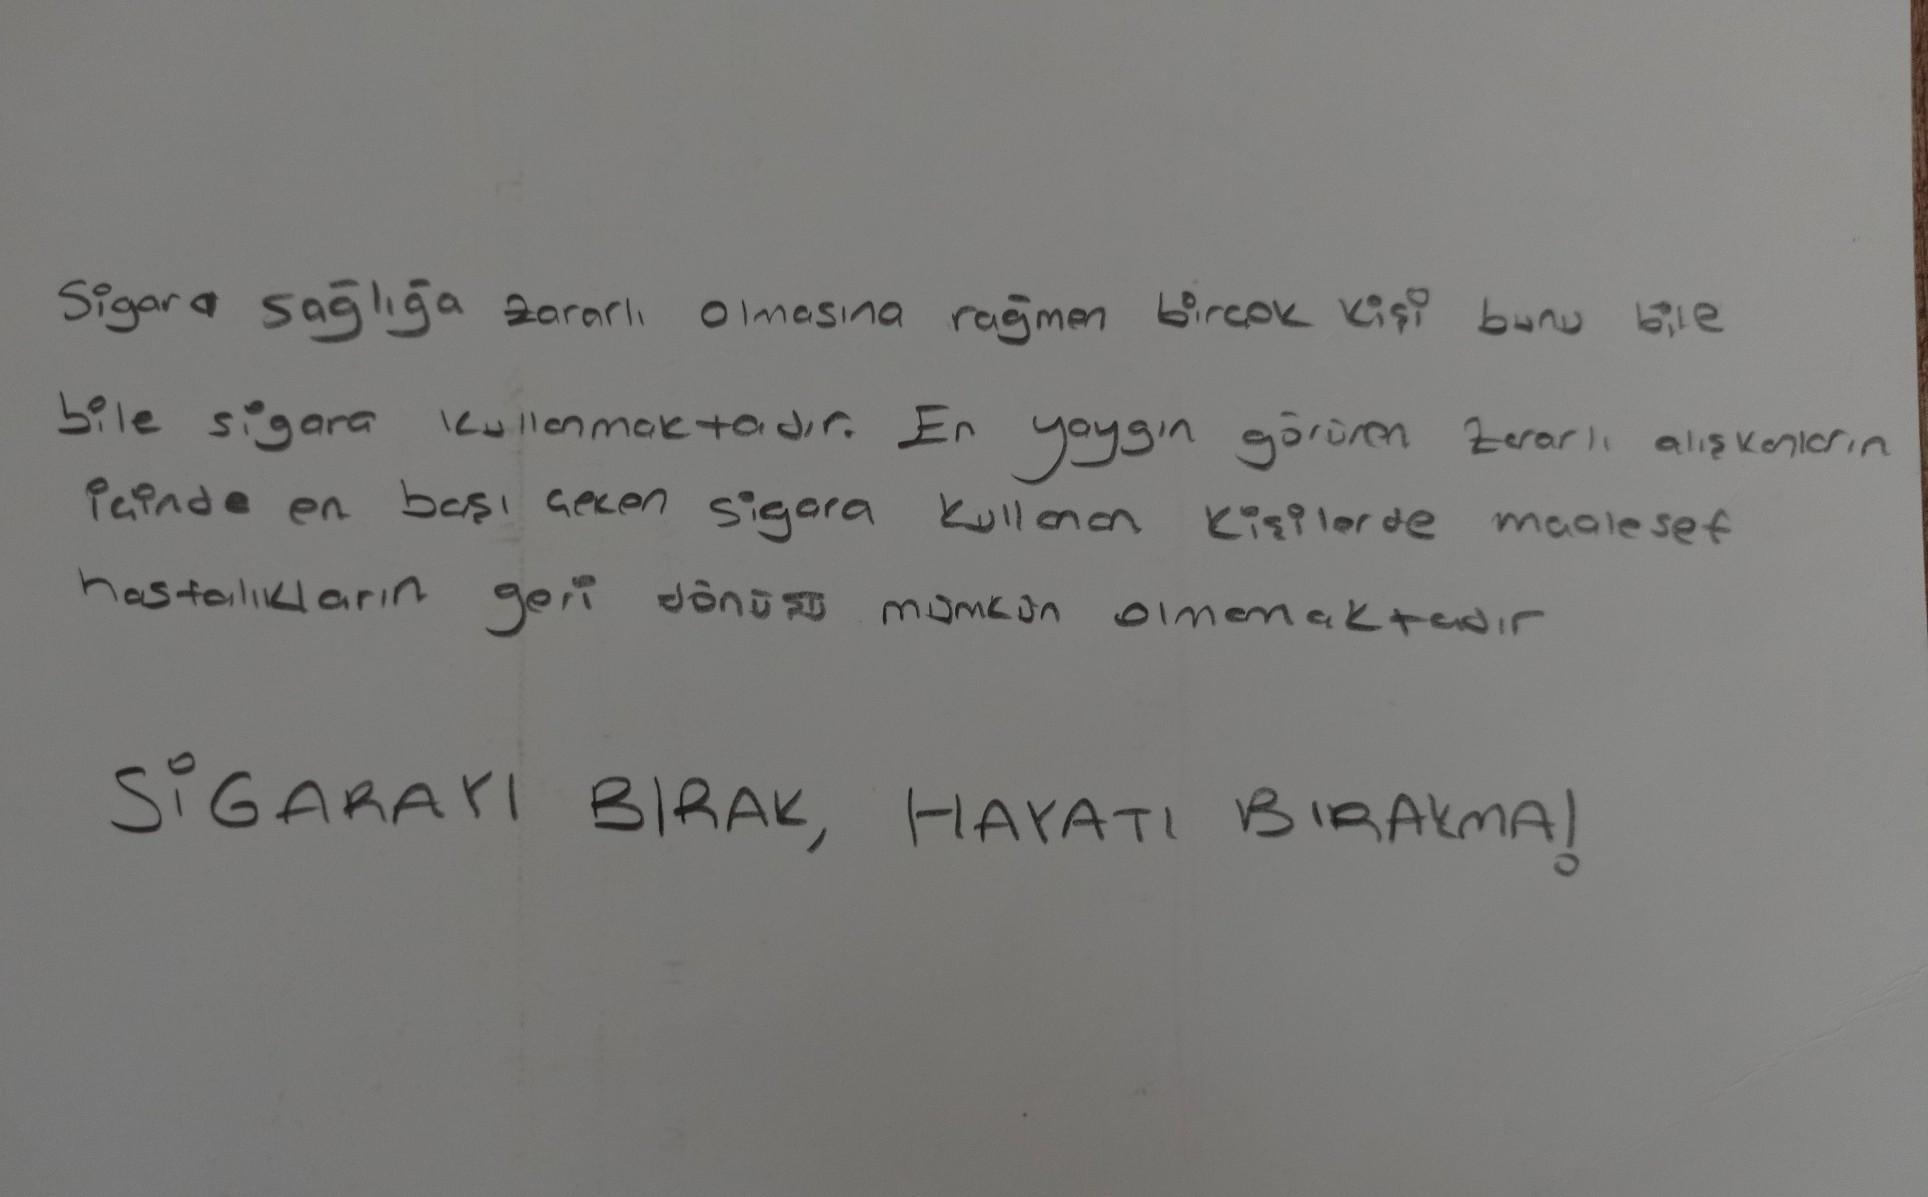 Sigara sağlığa zararlı olmasına rağmen birçok kişi bunu bile
bile sigara kullanmaktadır. En yaygın görüren zararlı alışkanların
içinde en başı çeken sigara kullanan kişilerde maalesef
hastalıkların geri dönüşü mümkün olmamaktadır
SİGARAYI BIRAK, HAYATI BIRAKMA!